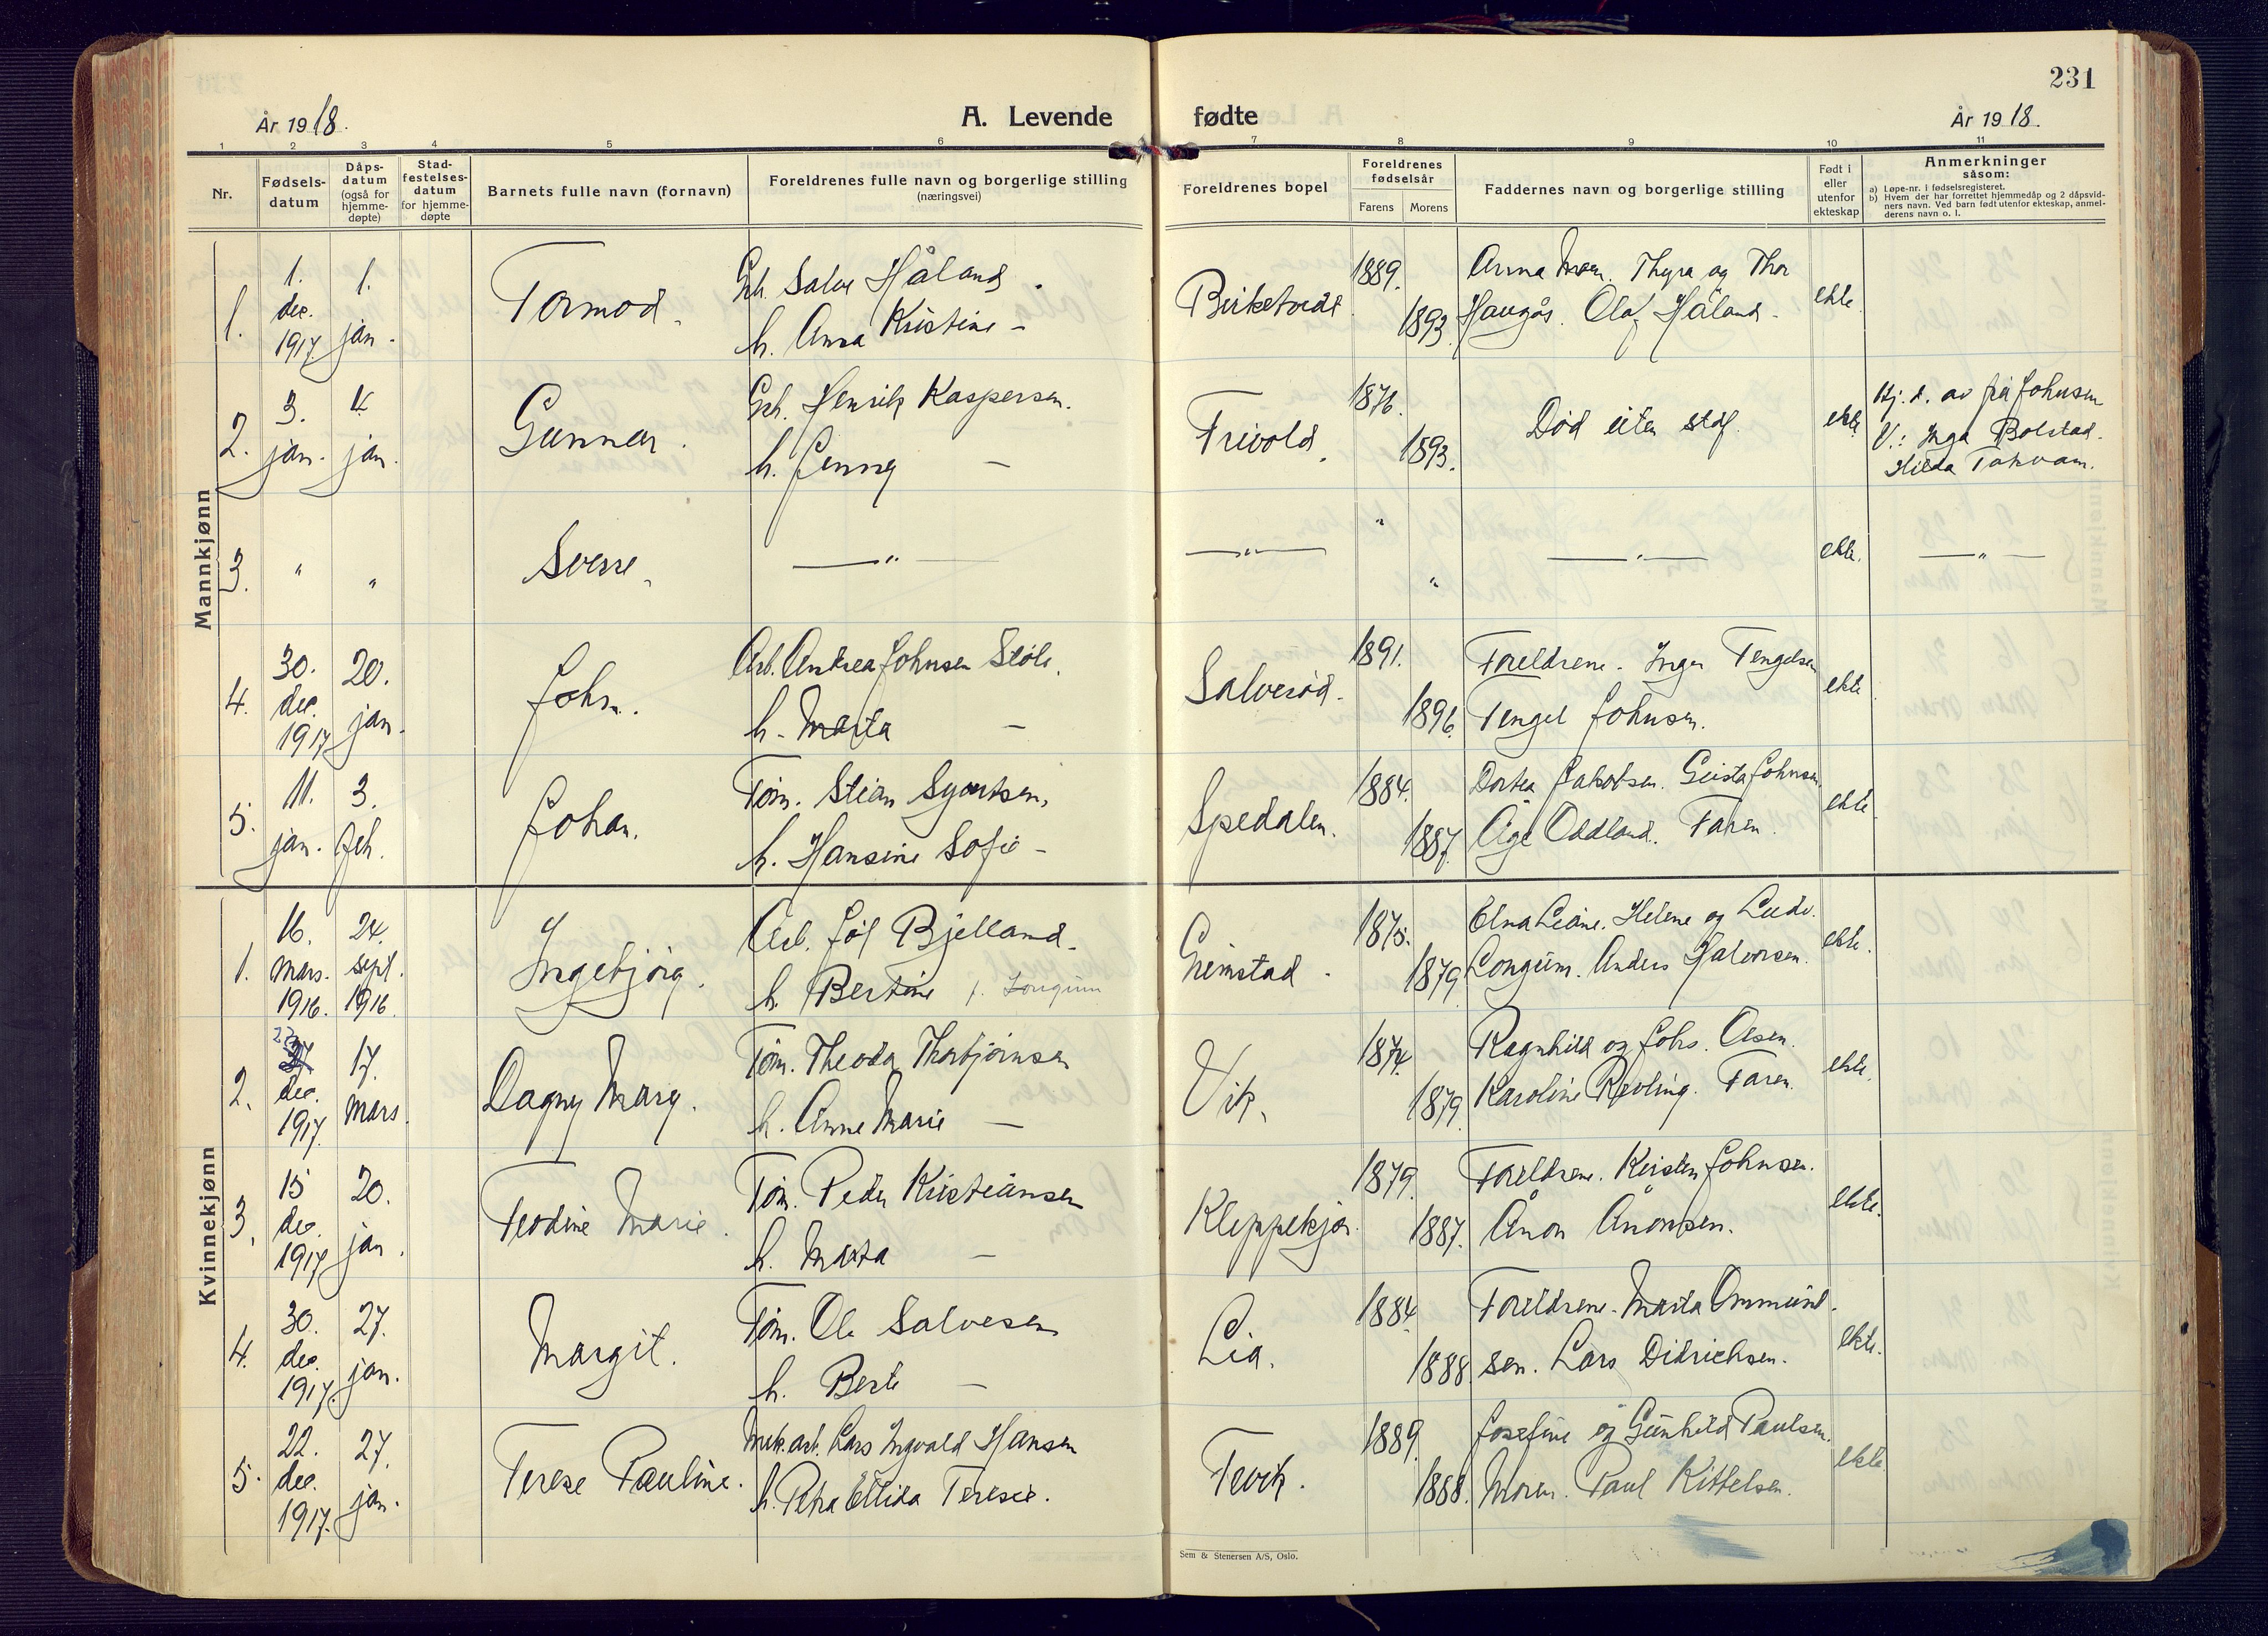 231
År 1918.
A. Levende fødte
År 1918.
1 2 3 4 5 6 7 8 9 10 11
Nr.
Fødsels-
datum
Dåps-
datum
(også for
hjemme-
døpte)
Stad-
festelses-
datum
for hjemme-
døpte
Barnets fulle navn (fornavn)
Foreldrenes fulle navn og borgerlige stilling
(næringsvei)
Foreldrenes bopel
Foreldrenes
fødselsår
Farens Morens
Faddernes navn og borgerlige stilling
Født i
eller
utenfor
ekteskap
Anmerkninger
såsom:
a) Løpe-nr. i fødselsregisteret.
b) Hvem der har forrettet hjemmedåp og 2 dåpsvid-
ners navn. Ved barn født utenfor ekteskap, anmel-
derens navn o. l.
Mannkjønn
1.
1.
dec.
1917
1.
jan.
Tormod.
Salve Håland.
h. Anna Kristine –
Birketvedt
1889.
1893.
Anna Moen. Thyra og Thor
Haugås. Olaf Håland.
ekte.
2.
3.
jan.
4.
jan.
Gunnar.
Henrik Kaspersen.
h. Jenny –
Frivold.
1876.
1893.
Død eiter stdf.
ekte.
Hj. d. av frk Johnsen
V.: Inga Bolstad.
Hilda Takvam.
3.
" "
Sverre.
— " —
— " —
"
"
— " —
ekte.
— " —
4.
30.
dec.
1917
20.
jan.
John.
Arb. Andrea Johnsen Støle.
h. Marta –
Salverød.
1891.
1896.
Foreldrene. Inger Tengelsen
Tengel Johnsen.
ekte.
5.
11.
jan.
3.
feb.
Johan.
Tøm. Stian Syvertsen,
h. Hansine Sofie –
Spedalen.
1884.
1887.
Dortea Jakobsen. Johnsen.
Åge Oddland. Faren.
ekte.
Kvinnekjønn
1.
16.
mars.
1916.
24.
sept.
1916.
Ingebjørg.
Arb. Joël Bjelland.
h. Bertine f. Longum
Grimstad.
1875.
1879
Elna Leane. Helene og Ludv.
Longum. Anders Halvorsen.
ekte.
2.
27
dec.
1917.
17.
mars.
Dagny Marg.
Tøm. Theodor Thorbjørnsen
h. Anne Marie –
Vik.
1874.
1879.
Ragnhild og Johs. Olsen.
Karoline Revling. Faren.
ekte.
3.
15
dec.
1917
20.
jan.
Teodine Marie.
Tøm. Peder Kristiansen
h. Marta –
Kleppekjær.
1879.
1887.
Foreldrene. Kirsten Johnsen.
Ånon Ånonsen.
ekte.
4.
30.
dec.
1917.
27.
jan.
Margit.
Tøm. Ole Salvesen
h. Berte –
Lia.
1884.
1888.
Foreldrene. Marta Ommund-
sen. Lars Didrichsen.
ekte.
5.
22.
dec.
1917.
27.
jan.
Terese Pauline.
Mek.arb. Lars Ingvald Hansen
h. Petra Ellida Teresie.
Fevik.
1889.
1888.
Josefine og Gunhild Paulsen.
Moren. Paul Kittelsen.
ekte.
Sem & Stenersen A/S, Oslo.